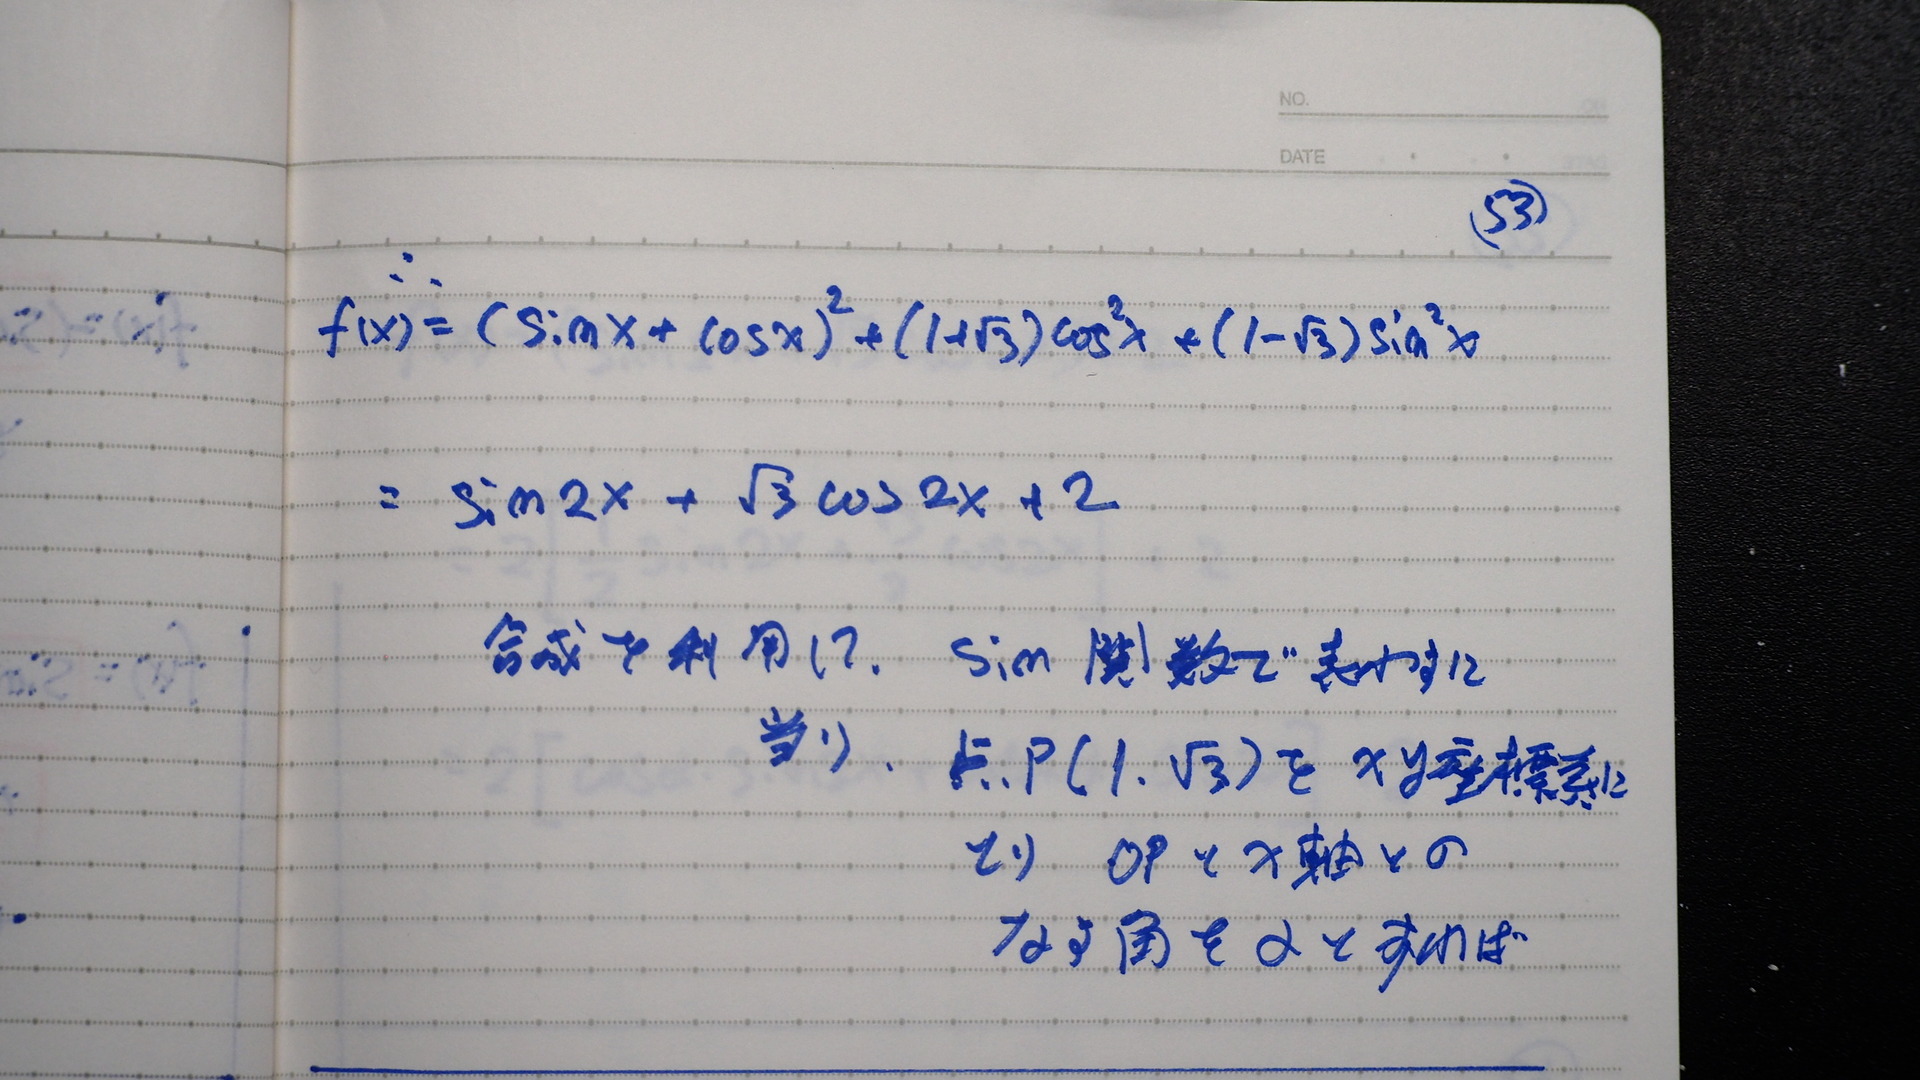 NO.
DATE
(53)
∴
f(x) = (sinx + cosx)² + (1+√3)cos²x + (1-√3)sin²x
= sin2x + √3cos2x + 2
合成を利用して、sin関数で表わすに
当り、点P(1.√3)をxy座標系に
とり OPとx軸との
なす角をαとすれば